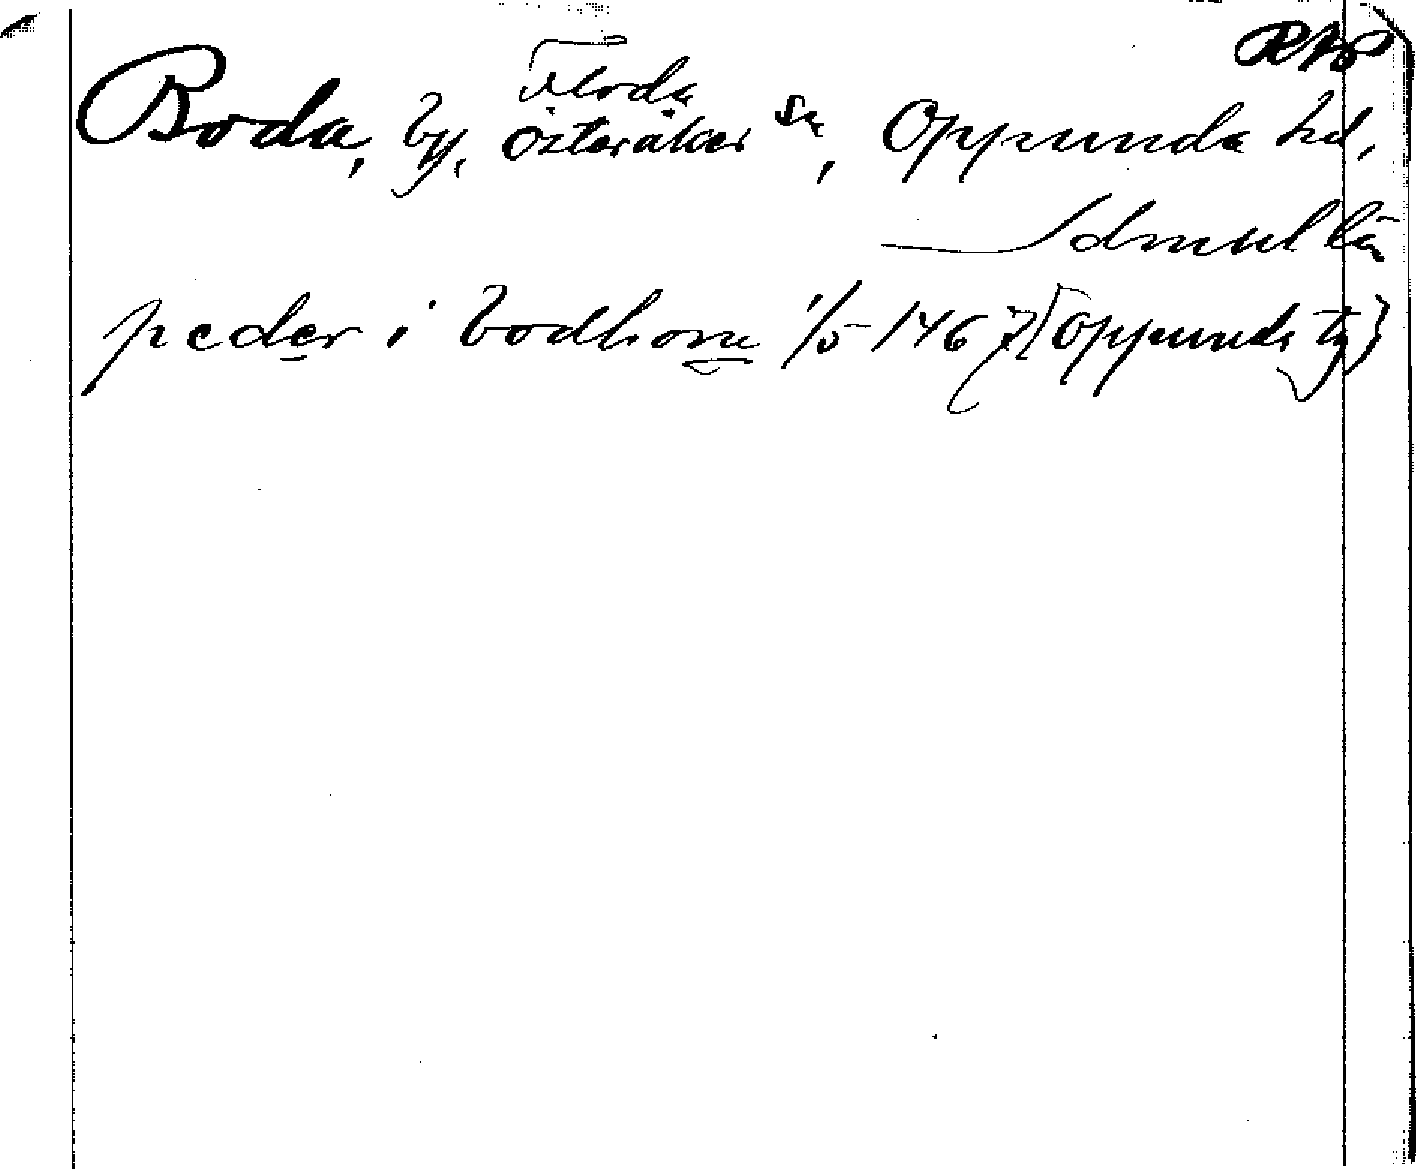 RAP
Floda
Boda, by, Österåker sn, Oppunda hd,
Sdmnl län
peder i bodhom 1/5 1467 (Oppunda tg)